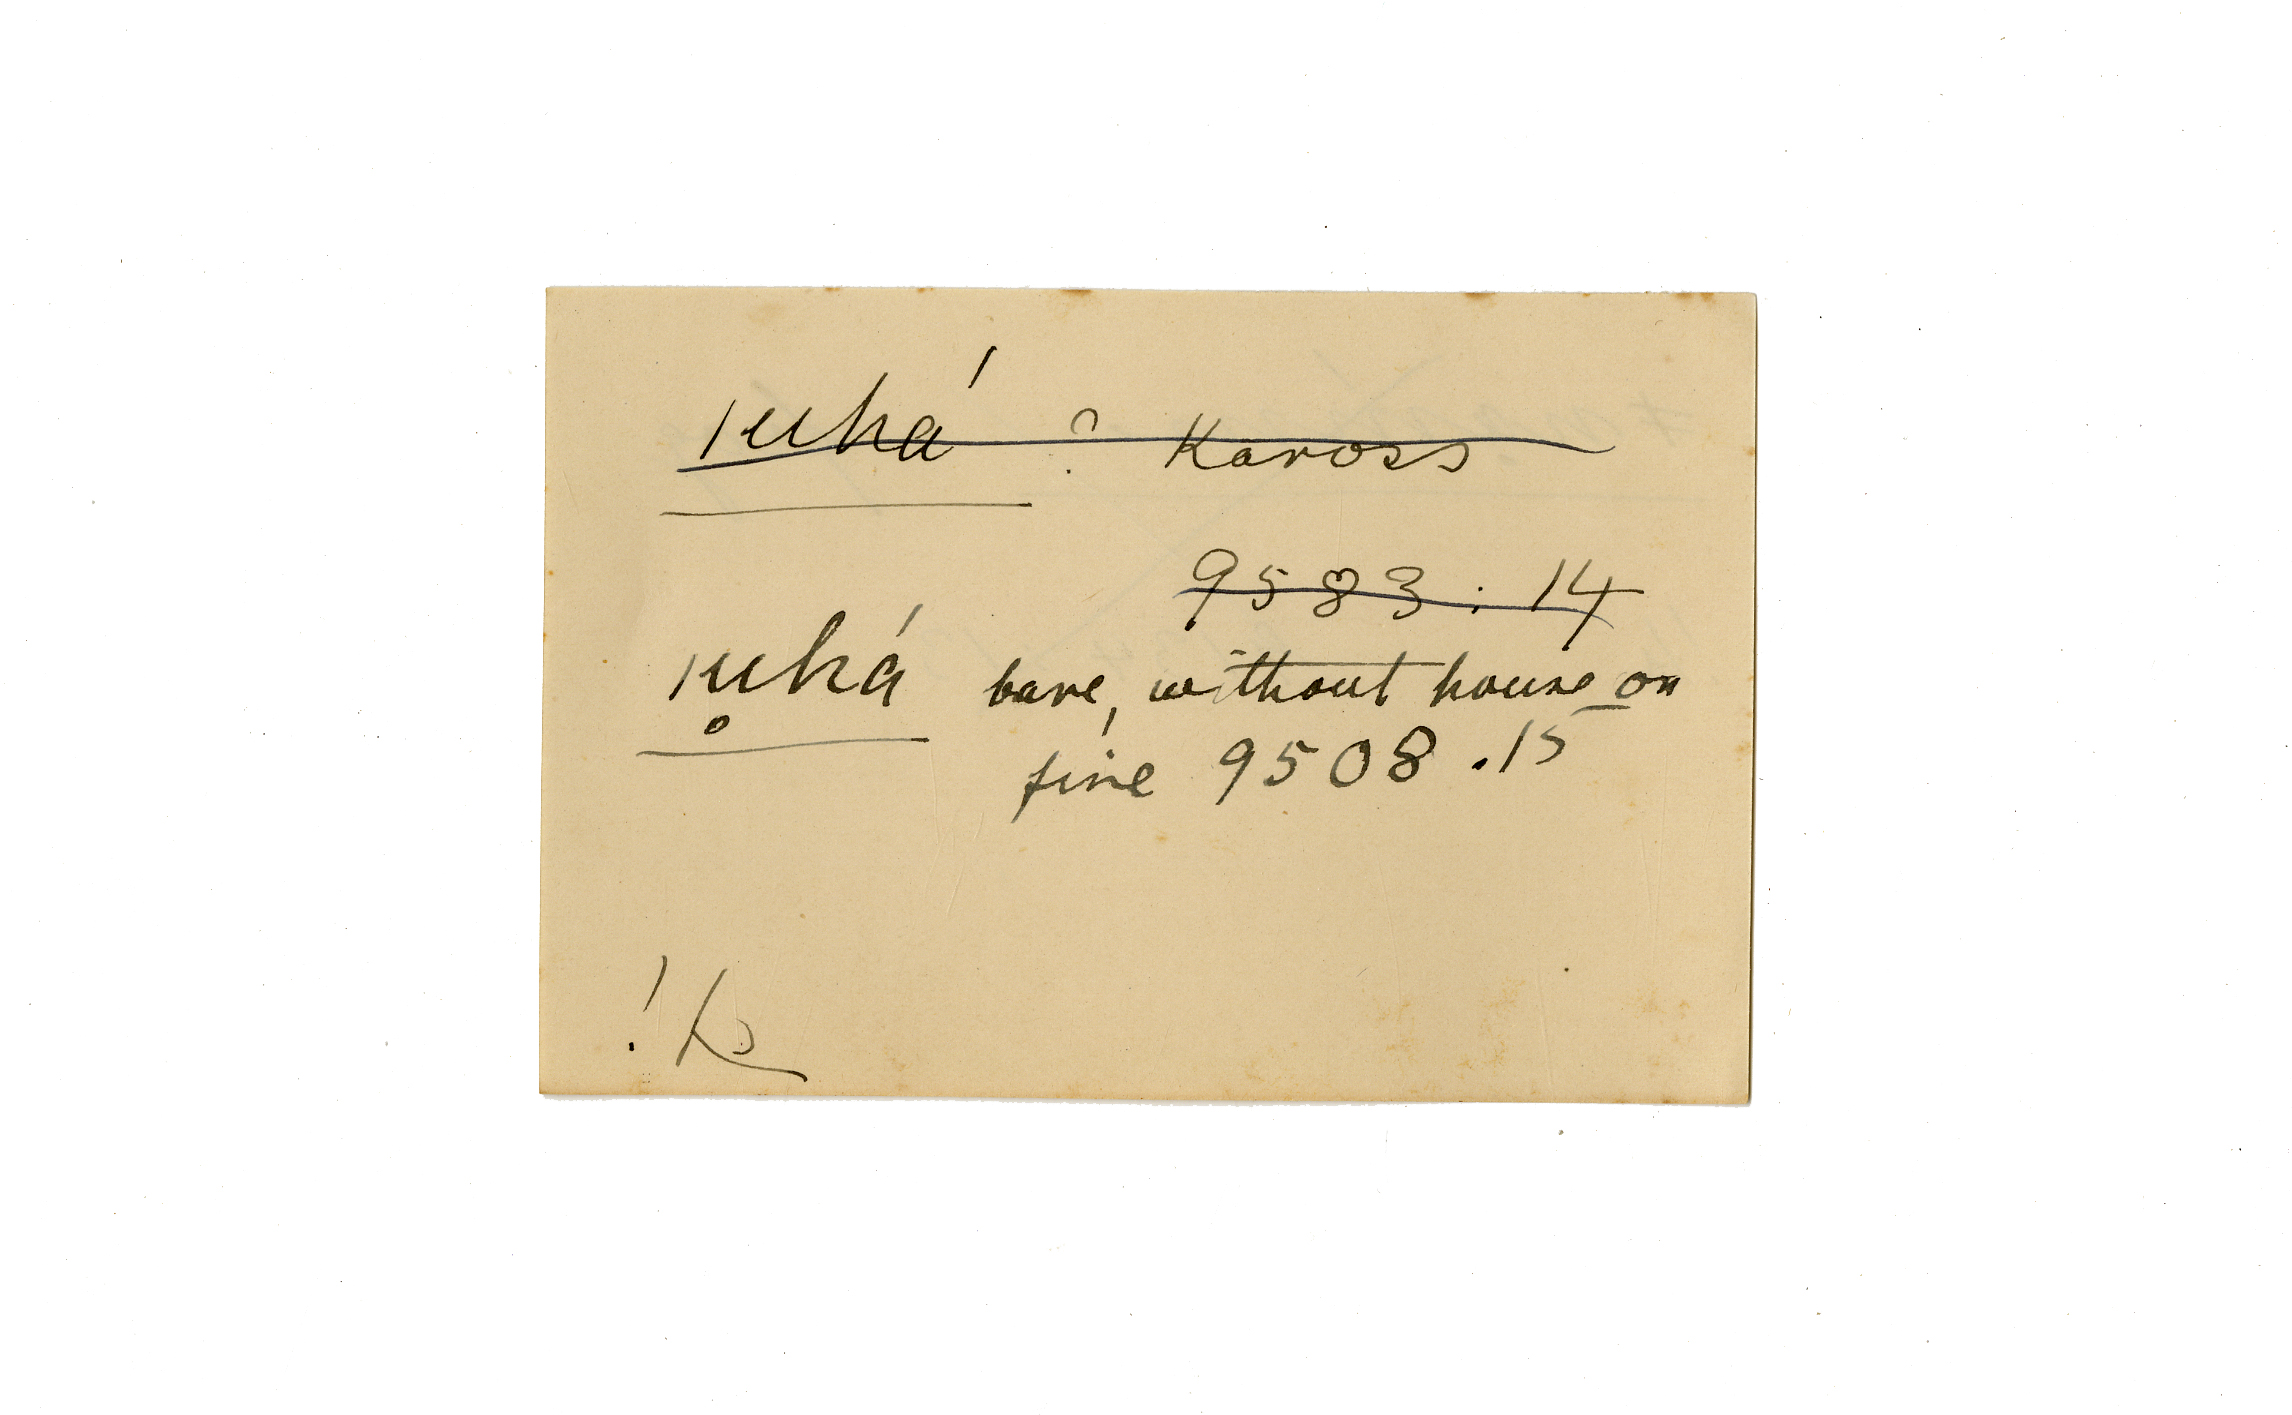 ǀuhá ? Kaross
9583 : 14
ǀu̥há bare, without house on
fire 9508 . 15
! K